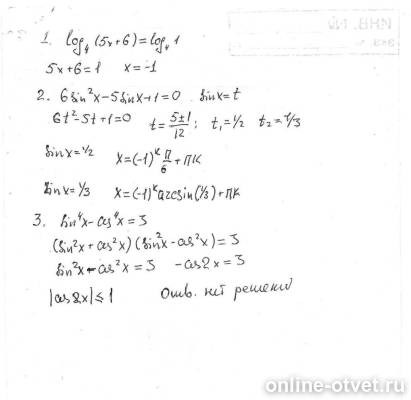 1. log₄(5x+6)=log₄1
5x+6=1 x=-1
2. 6sin²x-5sinx+1=0 sinx=t
6t²-5t+1=0 t=5±1/12; t₁=1/2 t₂=1/3
sinx=1/2 x=(-1)ᵏπ/6+πk
sinx=1/3 x=(-1)ᵏarcsin(1/3)+πk
3. sin⁴x-cos⁴x=3
(sin²x+cos²x)(sin²x-cos²x)=3
sin²x-cos²x=3 -cos2x=3
|cos2x|≤1 Отв. нет решений
online-otvet.ru